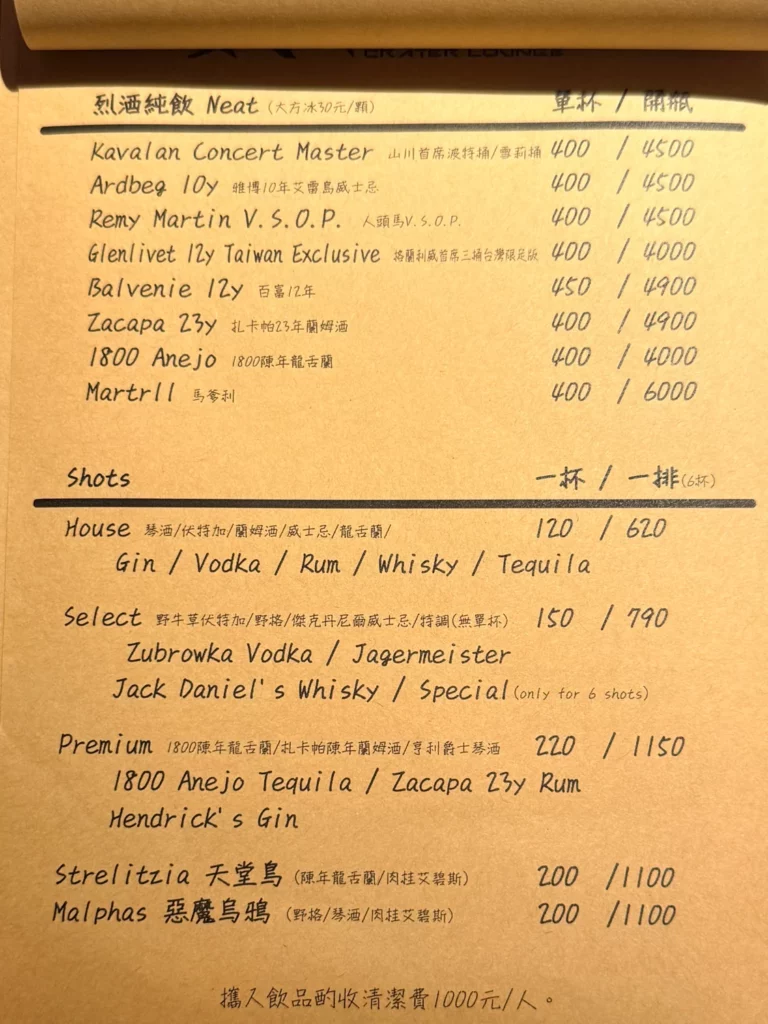 CRATER LOUNGE
烈酒純飲 Neat (大方冰30元/顆) 單杯 / 開瓶
Kavalan Concert Master 山川首席波特桶/雪莉桶 400 / 4500
Ardbeg 10y 雅博10年艾雷島威士忌 400 / 4500
Remy Martin V.S.O.P. 人頭馬V.S.O.P. 400 / 4500
Glenlivet 12y Taiwan Exclusive 格蘭利威首席三桶台灣限定版 400 / 4000
Balvenie 12y 百富12年 450 / 4900
Zacapa 23y 扎卡帕23年蘭姆酒 400 / 4900
1800 Anejo 1800陳年龍舌蘭 400 / 4000
Martrll 馬爹利 400 / 6000
Shots 一杯 / 一排(6杯)
House 琴酒/伏特加/蘭姆酒/威士忌/龍舌蘭/ 120 / 620
Gin / Vodka / Rum / Whisky / Tequila
Select 野牛草伏特加/野格/傑克丹尼爾威士忌/特調(無單杯) 150 / 790
Zubrowka Vodka / Jagermeister
Jack Daniel's Whisky / Special (only for 6 shots)
Premium 1800陳年龍舌蘭/扎卡帕陳年蘭姆酒/亨利爵士琴酒 220 / 1150
1800 Anejo Tequila / Zacapa 23y Rum
Hendrick's Gin
Strelitzia 天堂鳥 (陳年龍舌蘭/肉桂艾碧斯) 200 /1100
Malphas 惡魔烏鴉 (野格/琴酒/肉桂艾碧斯) 200 /1100
攜入飲品酌收清潔費1000元/人。